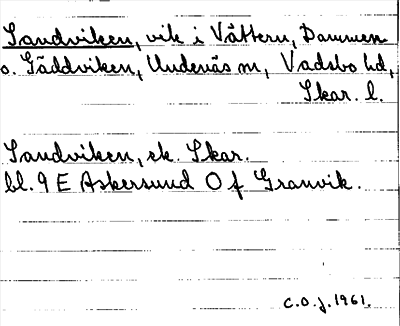 Sandviken, vik i Vättern, Dammen
o. Gäddviken, Undenäs m, Vadsbo hd,
Skar. l.
Sandviken, ek. Skar.
bl. 9 E Askersund O f Granvik.
C.O.J. 1961.